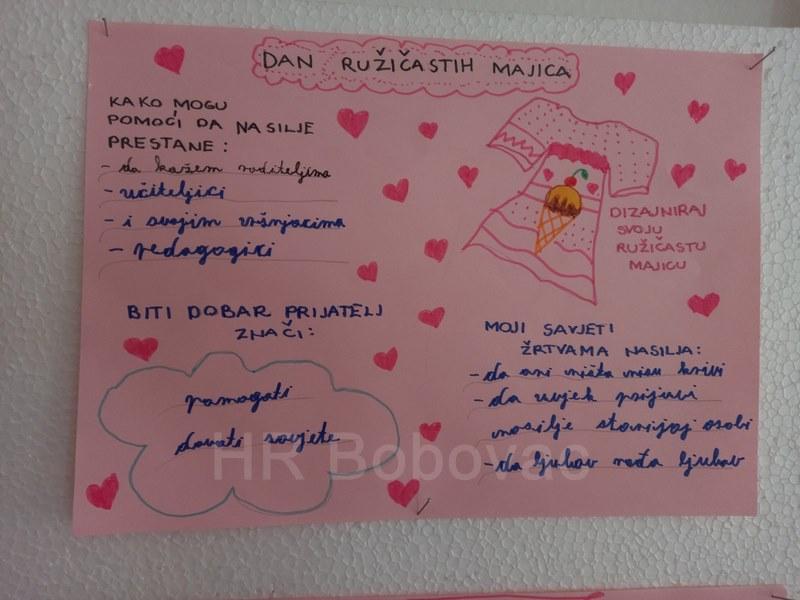 DAN RUŽIČASTIH MAJICA
KAKO MOGU
POMOĆI DA NASILJE
PRESTANE:
- da kažem roditeljima
- učiteljici
- i svojim vršnjacima
- pedagogici
BITI DOBAR PRIJATELJ
ZNAČI:
pomagati
davati savjete
DIZAJNIRAJ
SVOJU
RUŽIČASTU
MAJICU
MOJI SAVJETI
ŽRTVAMA NASILJA:
- da oni ništa nisu krivi
- da uvjek prijavi
nasilje starijoj osobi
- da ljubav rađa ljubav
HR Bobovac